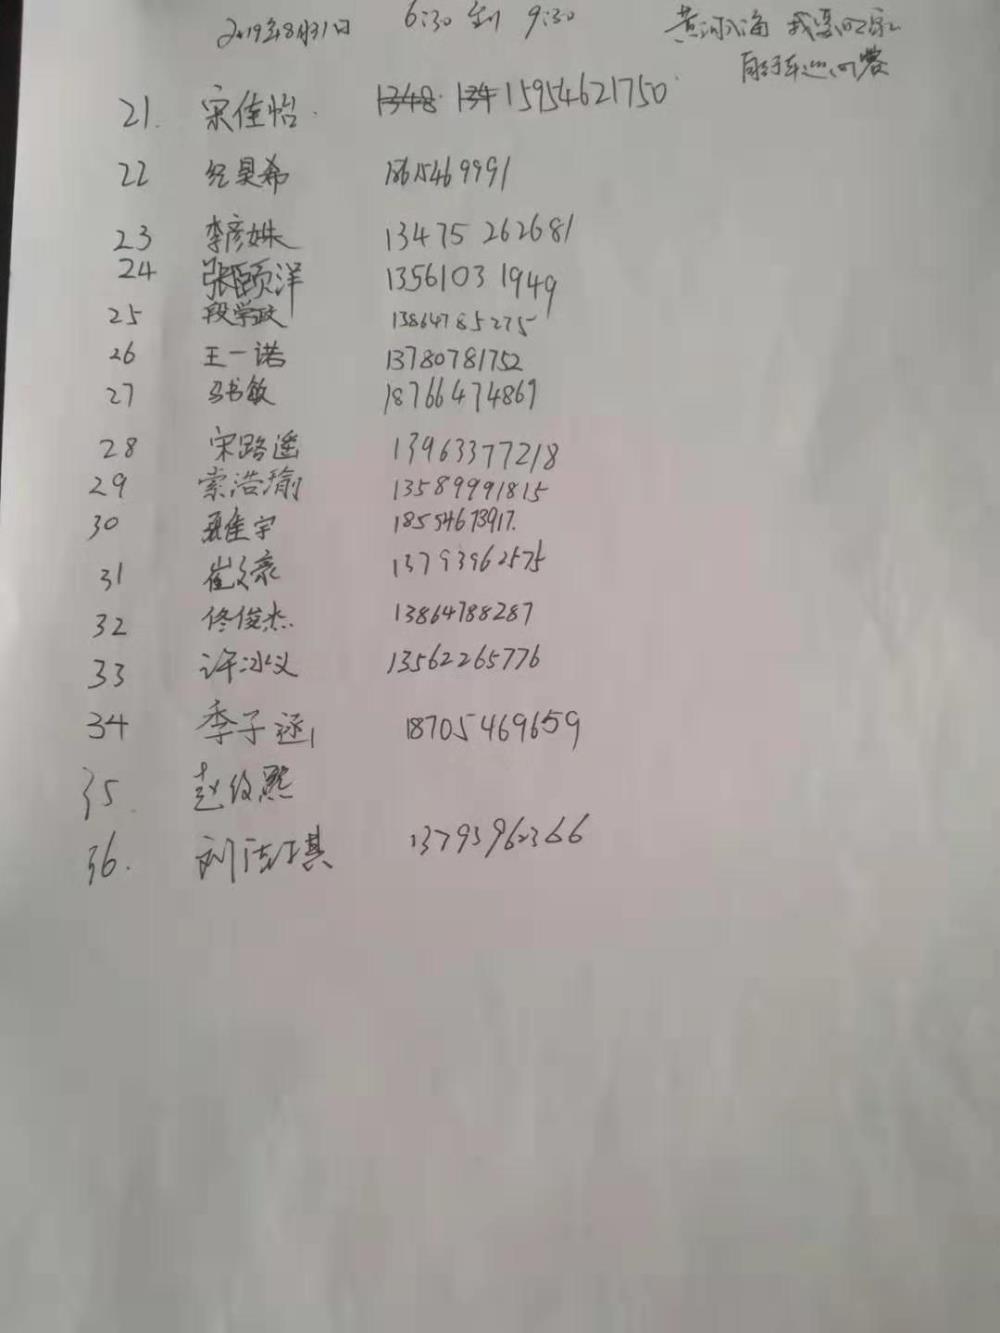 2019年8月31日 6:30 到 9:30 黄河入海 我要回家
自行车巡回赛
21. 宋佳怡. 1348 134 15954621750
22 纪昊希 18615469991
23 李彦姝 13475 262681
24 张颐洋 1356103 1949
25 段学政 13864785275
26 王一诺 13780781752
27 马书敏 18766474869
28 宋路遥 13963377218
29 索浩瑜 13589991815
30 聂佳宇 18554673917.
31 崔文豪 13793962575
32 佟俊杰. 13864788287
33 许冰义 13562265776
34 季子 18705469659
35. 赵俊熙
36. 刘洁琪 13793962366